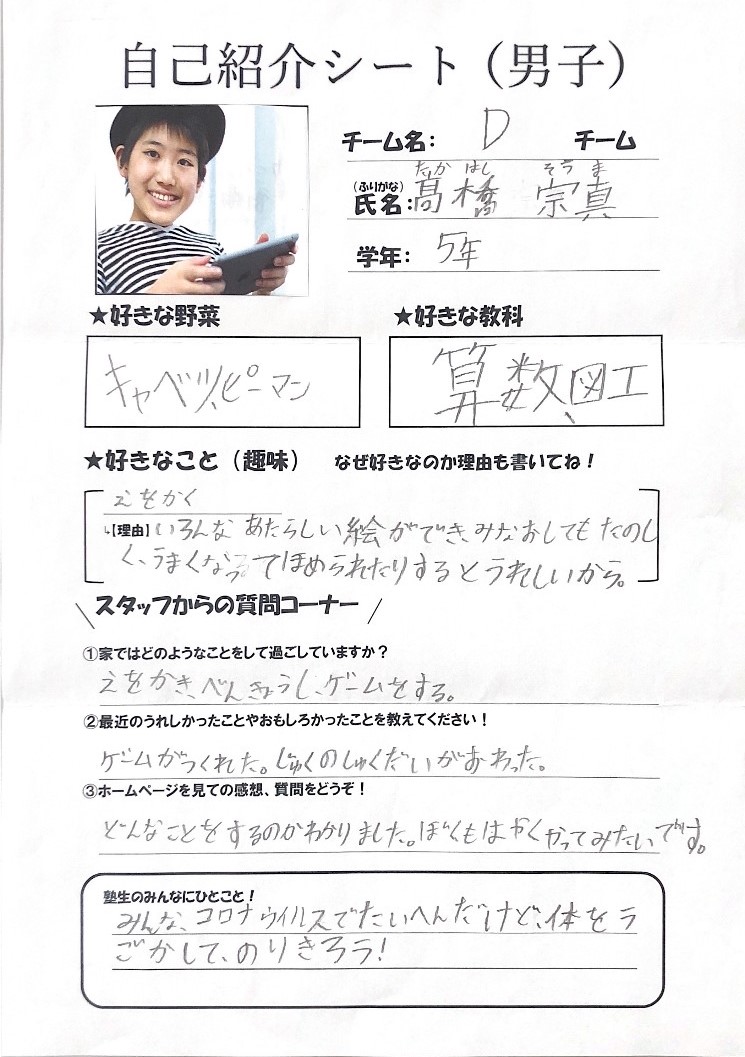 自己紹介シート（男子）
チーム名： D チーム
たか はし そう ま
（ふりがな）
氏名： 髙橋 宗真
学年： 5年
★好きな野菜 ★好きな教科
キャベツ、ピーマン 算数、図工
★好きなこと（趣味） なぜ好きなのか理由も書いてね！
えをかく
【理由】いろんなあたらしい絵ができ、みなおしてもたのし
く、うまくなってほめられたりするとうれしいから。
スタッフからの質問コーナー
①家ではどのようなことをして過ごしていますか？
えをかき、べんきょうし、ゲームをする。
②最近のうれしかったことやおもしろかったことを教えてください！
ゲームがつくれた。じゅくのしゅくだいがおわった。
③ホームページを見ての感想、質問をどうぞ！
どんなことをするのかわかりました。ぼくもはやくやってみたいです。
塾生のみんなにひとこと！
みんな、コロナウイルスでたいへんだけど、体をう
ごかして、のりきろう！